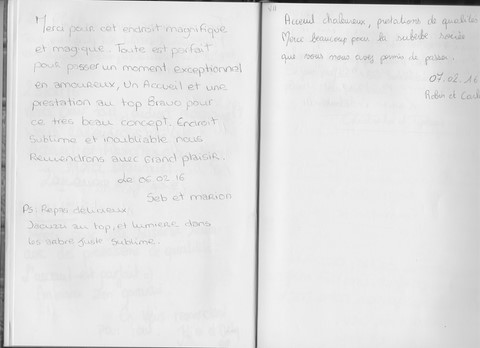 Merci pour cet endroit magnifique
et magique. Toute est parfait
pour passer un moment exceptionnel
en amoureux, Un Accueil et une
prestation au top Bravo pour
ce très beau concept. Endroit
Sublime et inoubliable nous
Reviendrons avec Grand plaisir.
Le 06.02.16
Seb et marion
Ps: Repas délicieux
Jacuzzi au top, et lumière dans
les arbre juste sublime.
Accueil chaleureux, prestations de qualités
Merci beaucoup pour la superbe soirée
que vous nous avez permis de passer.
07.02.16
Robin et